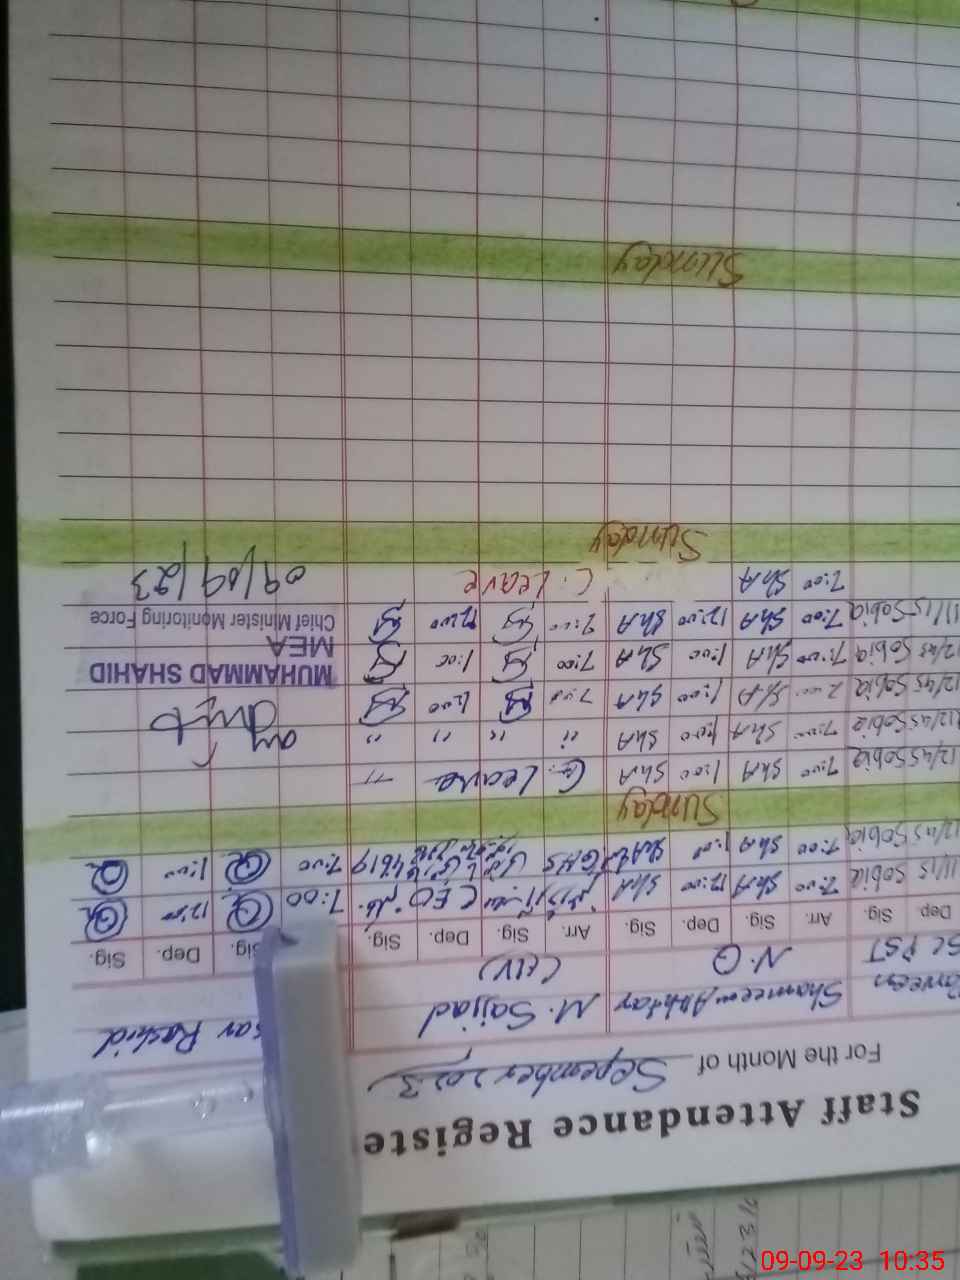 Staff Attendance Registe
For the Month of September 2023
Parveen Shameem Akhtar M. Sajjad sar Rashid
SC PST N.Q (ELV)
Dep Sig. Arr. Sig. Dep. Sig. Arr. Sig. Dep. Sig. Sig. Dep. Sig.
11/15 Sobia 7:00 ShA 12:00 ShA CEO 7:00 12:00
12/45 Sobia 7:00 ShA 1:00 ShA 7:00 1:00
Sunday
12/45 Sobia 7:00 ShA 1:00 ShA C. Leave "
12/45 Sobia 7:00 ShA 1:00 ShA " " " "
12/45 Sobia 7:00 ShA 1:00 ShA 7:00 1:00
12/45 Sobia 7:00 ShA 1:00 ShA 7:00 1:00 MUHAMMAD SHAHID
MEA
11/15 Sobia 7:00 ShA 12:00 ShA 7:00 12:00 Chief Minister Monitoring Force
7:00 ShA C. Leave 09/09/23
Sunday
Sunday
09-09-23 10:35